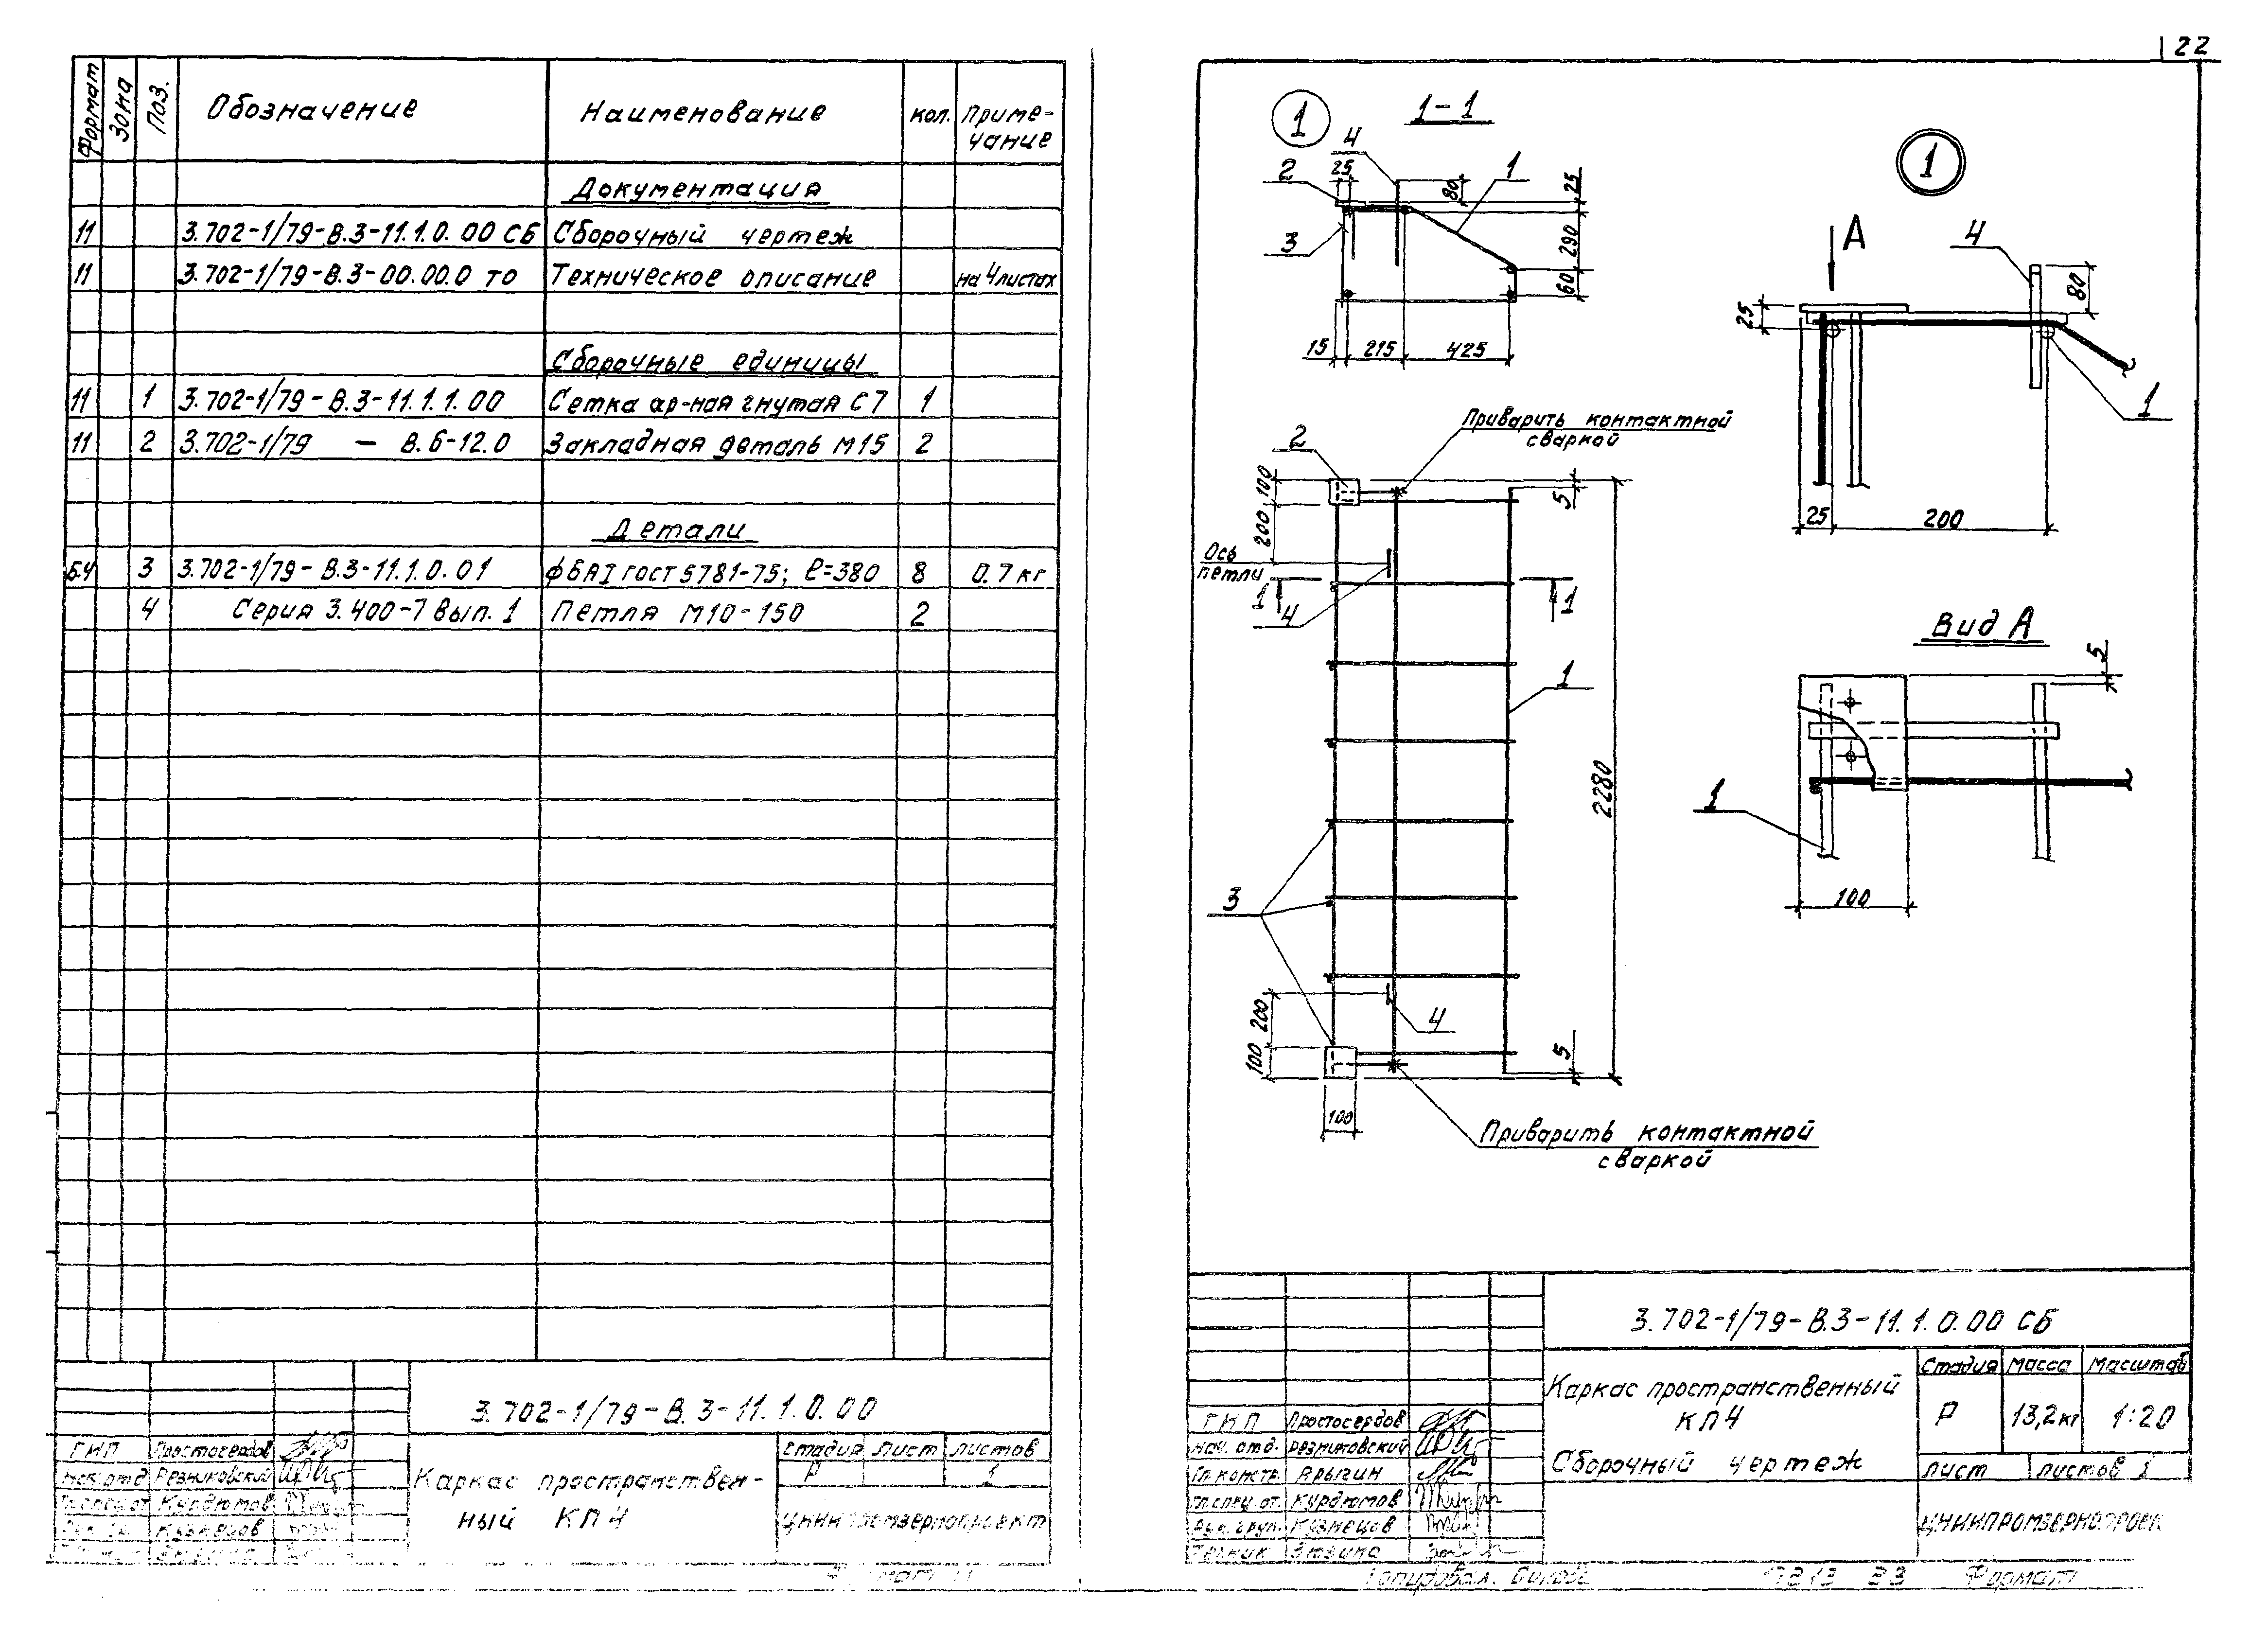 22
Формат
Зона
Поз.
Обозначение
Наименование
кол.
Приме-
чание
Документация
11 3.702-1/79-В.3-11.1.0.00 СБ Сборочный чертеж
11 3.702-1/79-В.3-00.00.0 ТО Техническое описание на 4 листах
Сборочные единицы
11 1 3.702-1/79-В.3-11.1.1.00 Сетка ар-ная гнутая С7 1
11 2 3.702-1/79 — В.6-12.0 Закладная деталь М15 2
Детали
Б.4 3 3.702-1/79-В.3-11.1.0.01 ф6АI ГОСТ 5781-75; ℓ=380 8 0.7 кг
4 Серия 3.400-7 вып. 1 Петля М10-150 2
3.702-1/79-В.3-11.1.0.00
ГИП Простосердов
Нач. отд Резниковский
Курдюмов
Кузнецов
Каркас пространствен-
ный КП4
стадия лист листов
Р 1
ЦНИИПРОМЗЕРНОПРОЕКТ
1 1-1
4
2 25 80 1 25
3 290
60
15 215 425
1
А 4
80
25
1
25 200
Приварить контактной
сваркой
2
100
5
200
Ось
петли
1 4 1
1
2280
3
200
4
100
5
100
Приварить контактной
сваркой
Вид А
5
1
100
3.702-1/79-В.3-11.1.0.00 СБ
Каркас пространственный
КП4
Сборочный чертеж
Стадия Масса Масштаб
Р 13,2кг 1:20
лист листов 1
ЦНИИПРОМЗЕРНОПРОЕК
ГИП Простосердов
Нач. отд. Резниковский
Гл. констр. Арыгин
Гл. спец. от. Курдюмов
Рук. груп. Кузнецов
Техник Зюзина
Копировал.
Формат